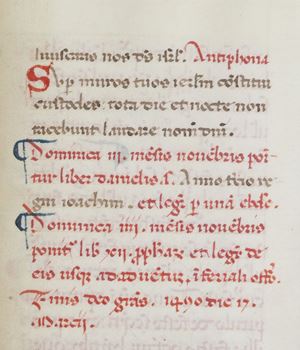 liuiscaris nos ds isrl. Antiphona
Sup muros tuos ierlm cōstitui
custodes: tota die et nocte non
tacebunt laudare nom dni.
Dominica iii. mēsis nouēbris poni
tur liber danielis. s. Anno tcio re
gni ioachim. et legr p unā ebdō.
Dominica iiii. mēsis nouēbris
ponit lib xii. pphar et legr de
eis usqz ad aduētum, ī feriali offō.
Finis deo grās. 1490 die 17.
Marcii.